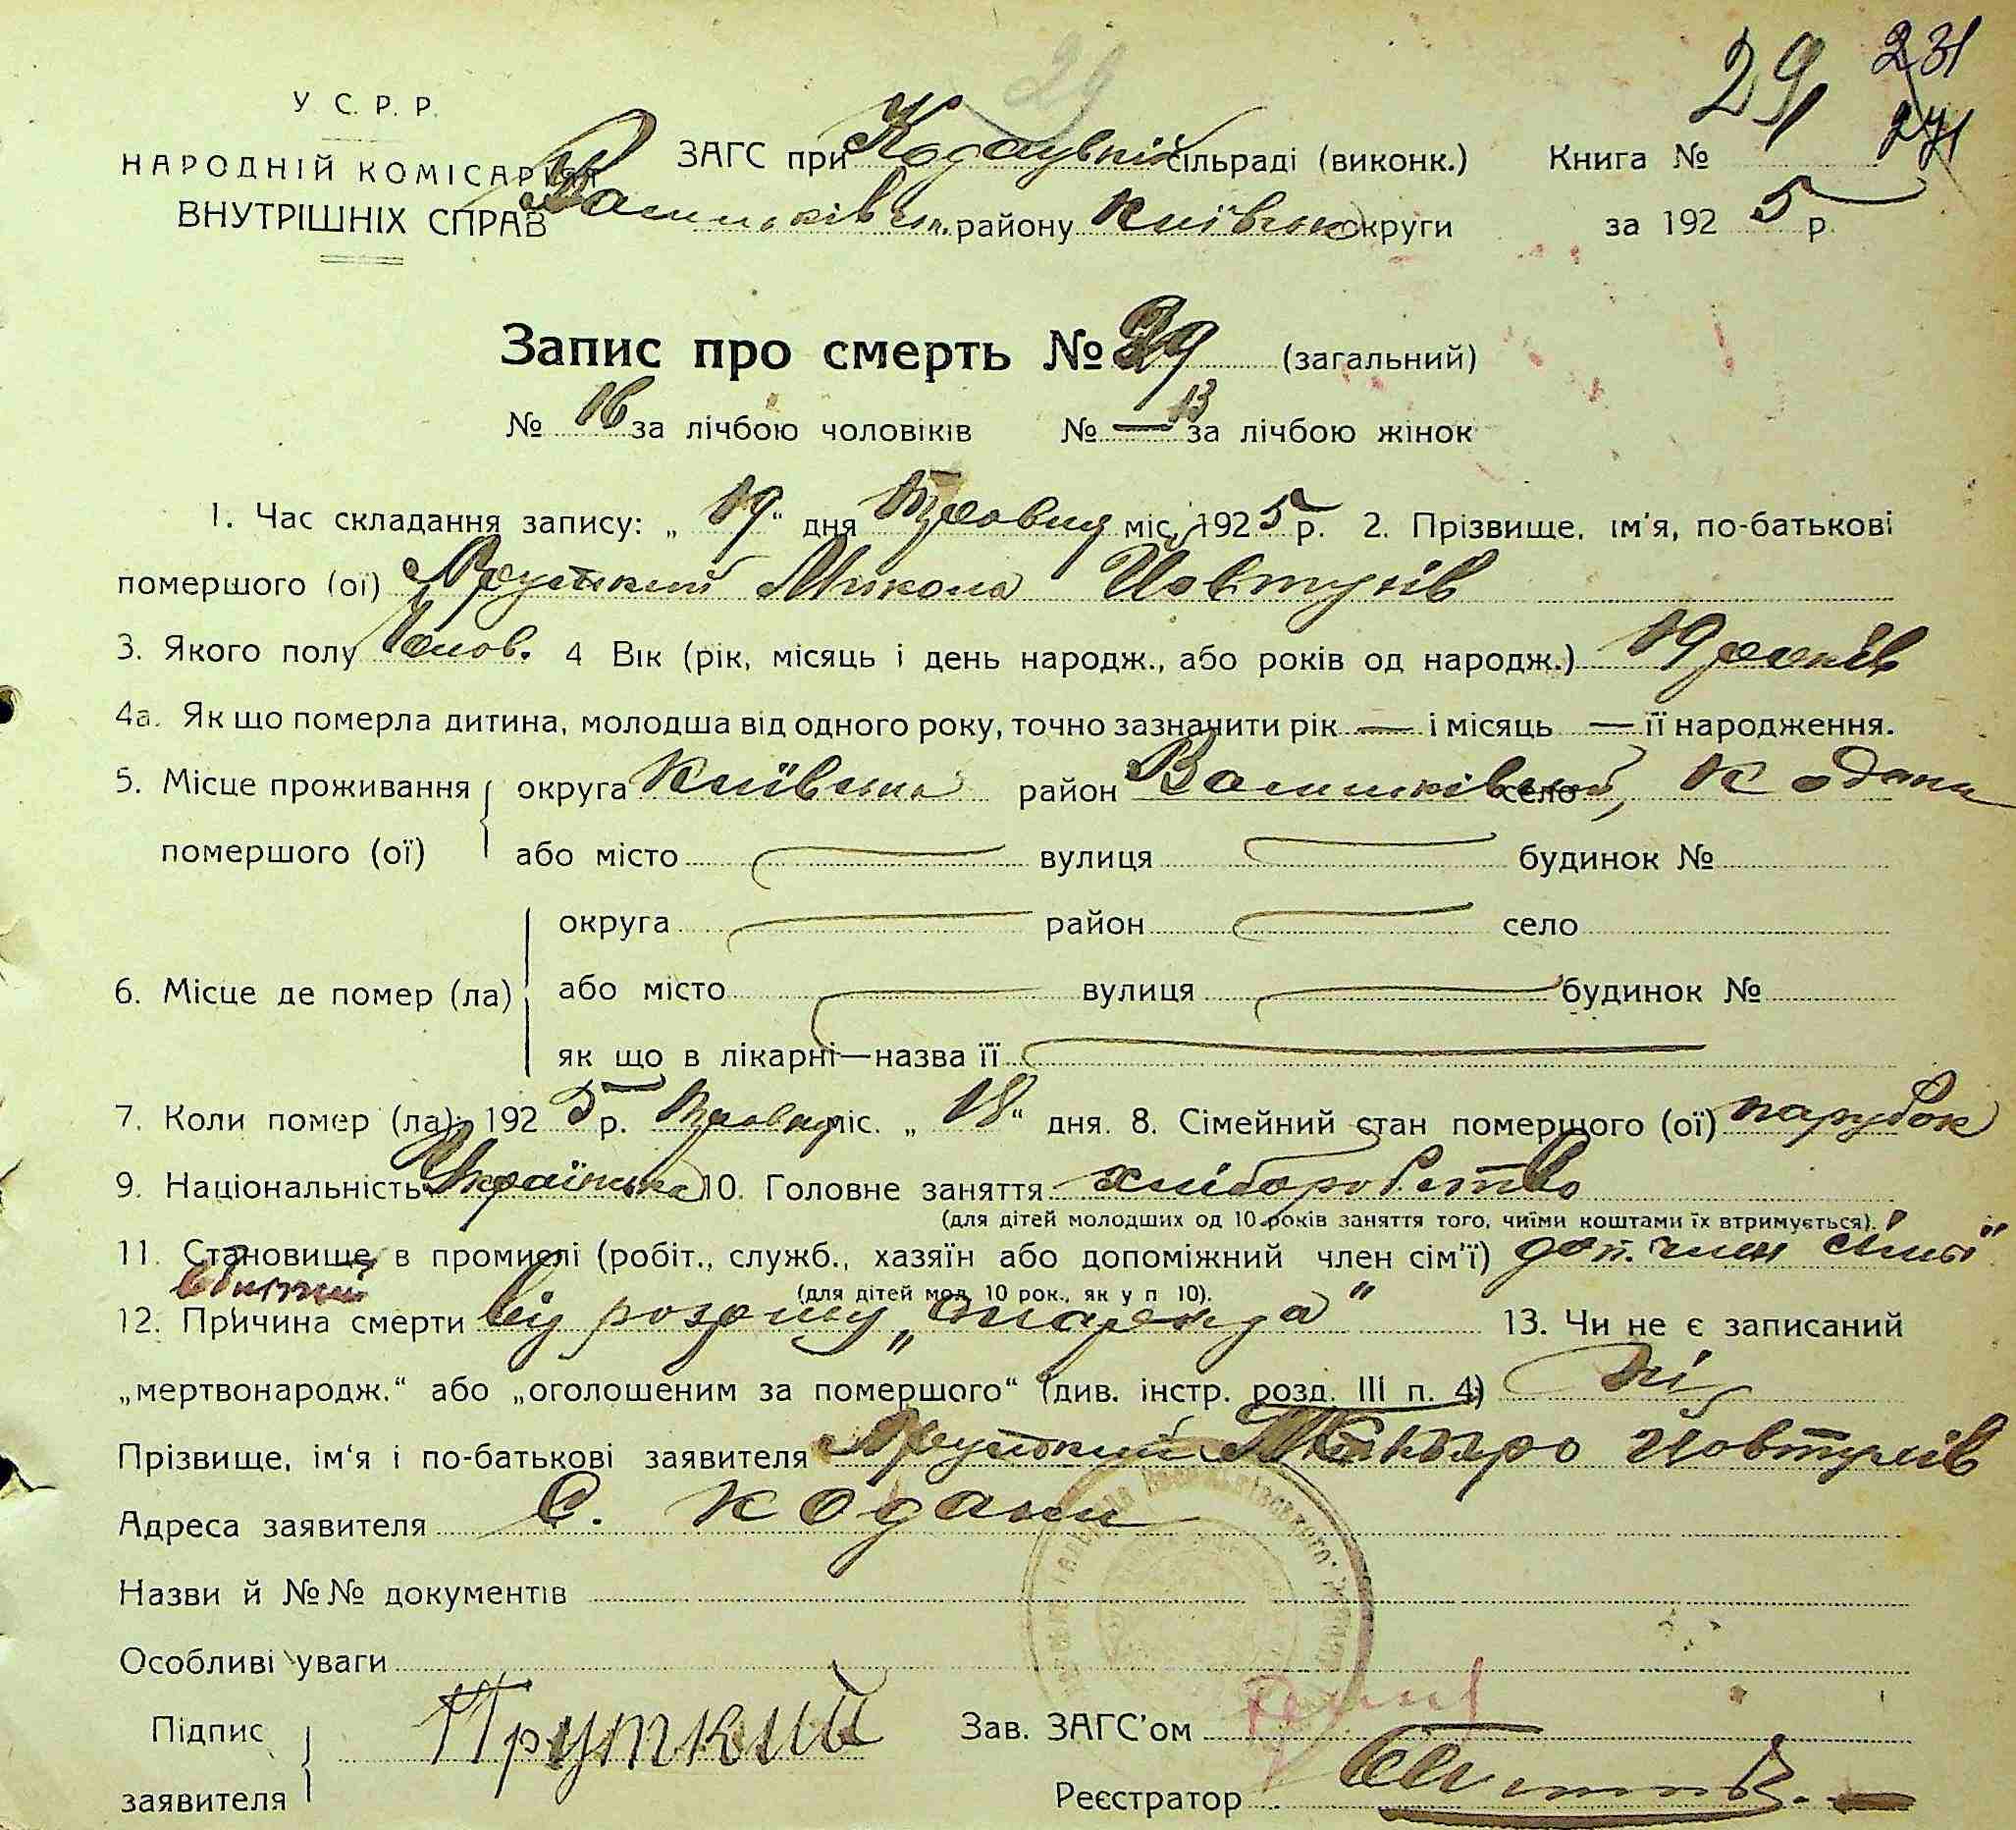 29
29, 231
У С. Р. Р.
НАРОДНІЙ КОМІСАРІЯТ
ВНУТРІШНІХ СПРАВ
ЗАГС при Кодацькій сільраді (виконк.) Книга №
району Київської округи за 1925 р.
Запис про смерть № 29 (загальний)
№ 16 за лічбою чоловіків № — 13 за лічбою жінок
1. Час складання запису: „ 19 “ дня Травня міс. 1925 р. 2. Прізвище, ім'я, по-батькові
помершого (ої) Пруткий Микола Йовтухів
3. Якого полу Чолов. 4 Вік (рік, місяць і день народж., або років од народж.) 19 років
4а. Як що померла дитина, молодша від одного року, точно зазначити рік — і місяць — її народження.
5. Місце проживання округа Київська район село Кодаки
помершого (ої) або місто вулиця будинок №
округа район село
6. Місце де помер (ла) або місто вулиця будинок №
як що в лікарні—назва її
7. Коли помер (ла): 1925 р. Травня міс. „ 18 “ дня. 8. Сімейний стан помершого (ої) парубок
9. Національність Українська 10. Головне заняття хліборобство
(для дітей молодших од 10 років заняття того, чиїми коштами їх втримується).
11. Становище в промислі (робіт., служб., хазяїн або допоміжний член сім'ї) доп. член сімьї
вбитий (для дітей мол. 10 рок., як у п 10).
12. Причина смерти від розриву „снаряда” 13. Чи не є записаний
„мертвонародж.“ або „оголошеним за помершого“ (див. інстр. розд. III п. 4) ні
Прізвище, ім'я і по-батькові заявителя Пруткий Йовтухів
Адреса заявителя С. Кодаки
Назви й №№ документів
Особливі уваги
Підпис Пруткий Зав. ЗАГС'ом
заявителя Реєстратор